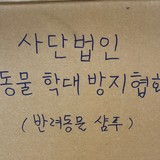 사단법인
동물 학대 방지협회
(반려동물 샴푸)